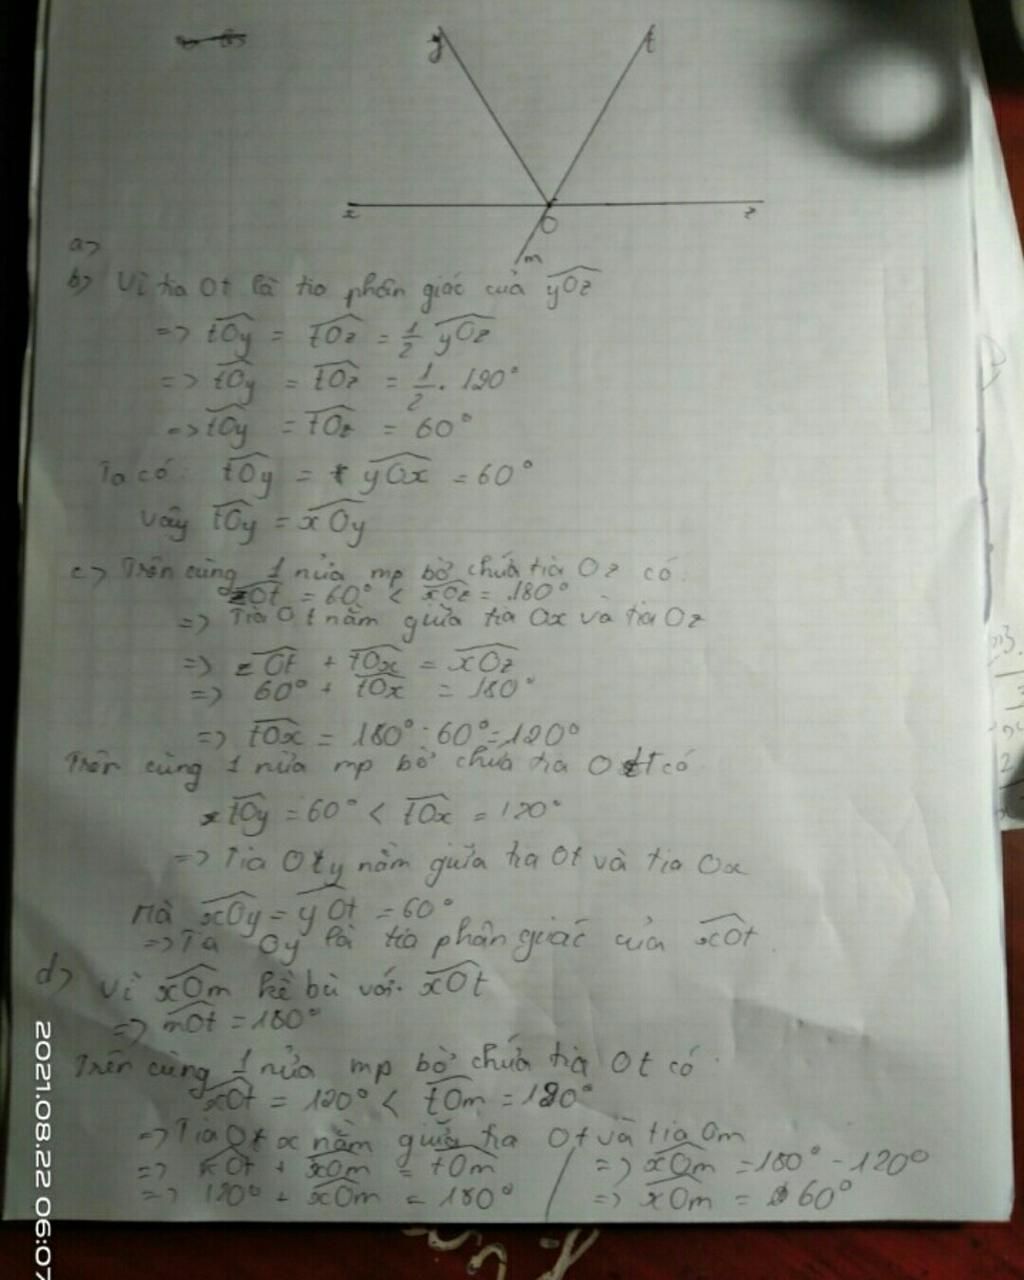 y t
x z
O
m
a>
b> Vì tia Ot là tia phân giác của yOz
=> tOy = tOz = 1/2 yOz
=> tOy = tOz = 1/2 . 120°
=> tOy = tOz = 60°
Ta có: tOy = yOx = 60°
Vậy tOy = xOy
c> Trên cùng 1 nửa mp bờ chứa tia Oz có:
zOt = 60° < xOz = 180°
=> Tia Ot nằm giữa tia Ox và tia Oz
=> zOt + tOx = xOz
=> 60° + tOx = 180°
=> tOx = 180° - 60° = 120°
Trên cùng 1 nửa mp bờ chứa tia Ot có
tOy = 60° < tOx = 120°
=> Tia Oy nằm giữa tia Ot và tia Ox
Mà xOy = yOt = 60°
=> Tia Oy là tia phân giác của xOt.
d> Vì xOm kề bù với xOt
=> mOt = 180°
Trên cùng 1 nửa mp bờ chứa tia Ot có:
xOt = 120° < tOm = 180°
=> Tia Ox nằm giữa tia Ot và tia Om
=> xOt + xOm = tOm / => xOm = 180° - 120°
=> 120° + xOm = 180° / => xOm = 60°
2021.08.22 06:07